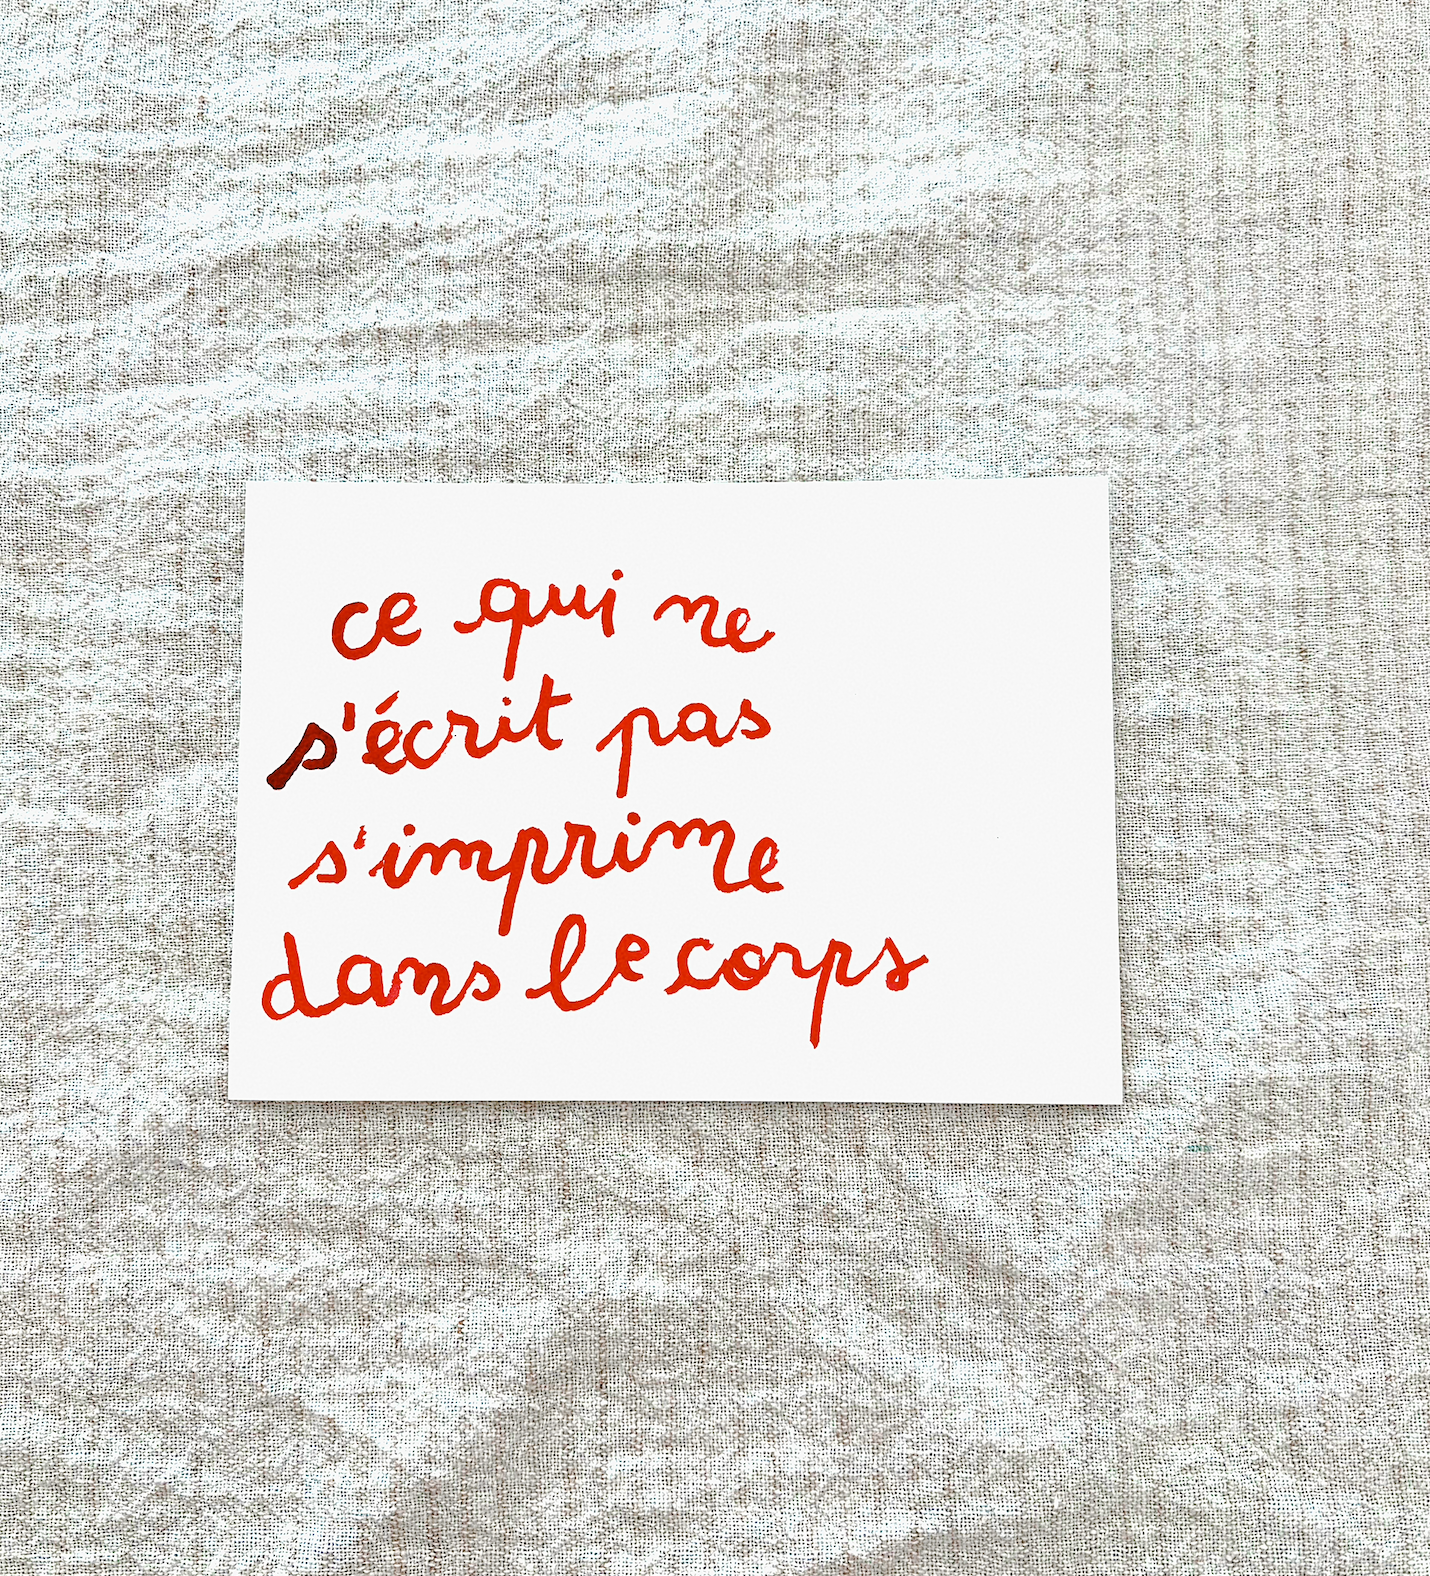 ce qui ne
s'écrit pas
s'imprime
dans le corps